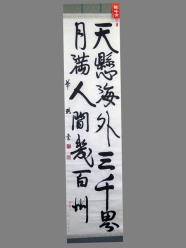 天懸海外三千界
月滿人間幾百州